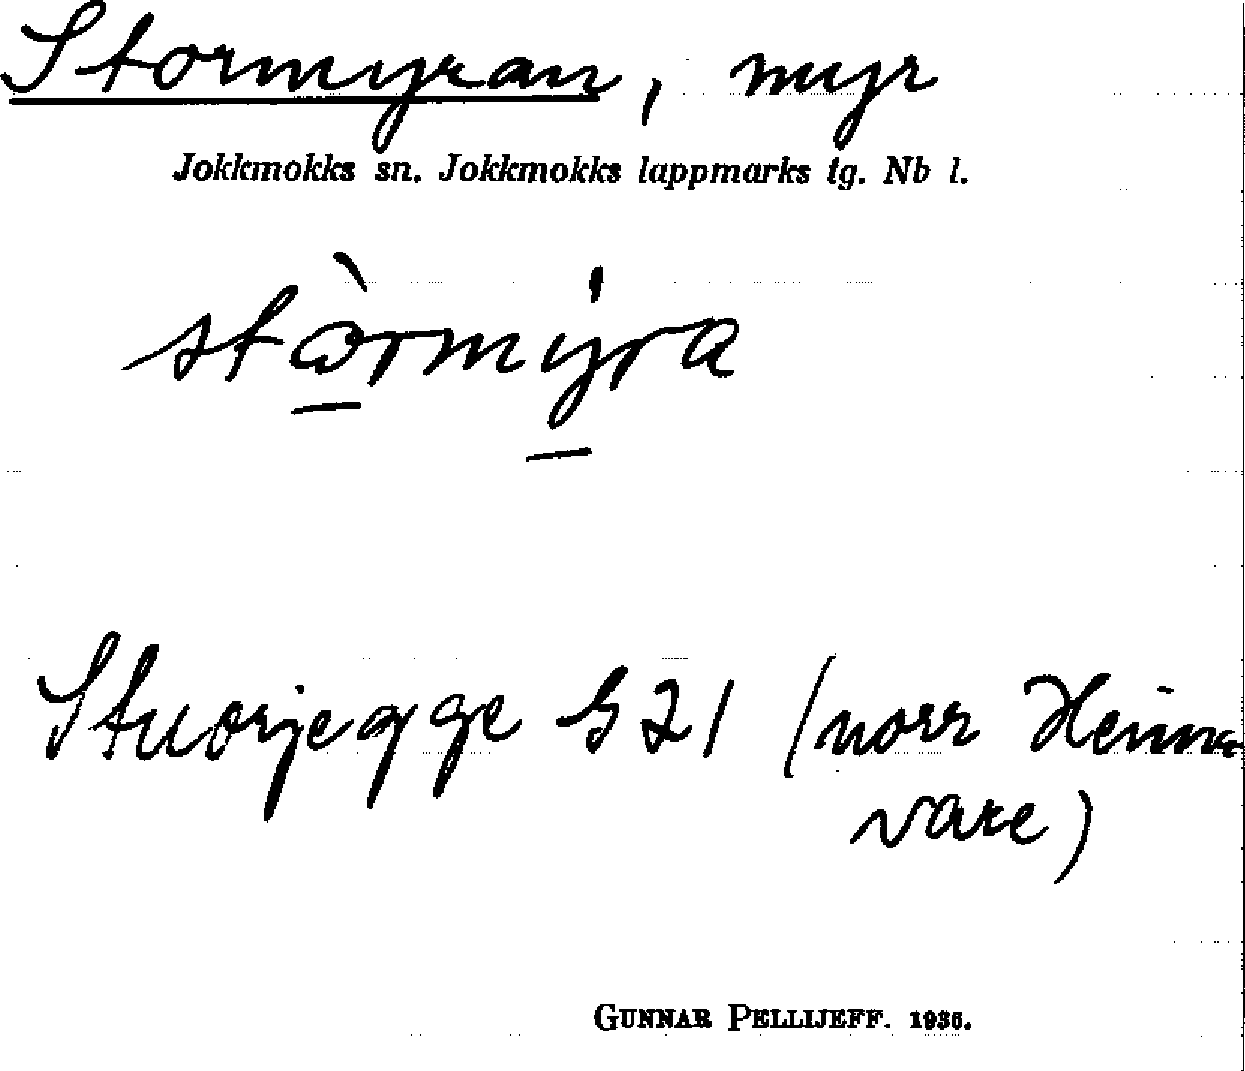 Stormyran, myr
Jokkmokks sn. Jokkmokks lappmarks tg. Nb l.
stòrmýra
Stuorjegge G 21 (norr Heinna
vare)
GUNNAR PELLIJEFF. 1936.